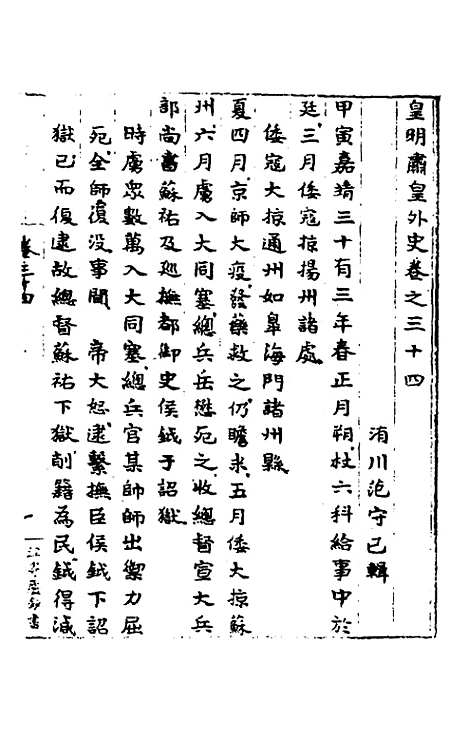 皇明肅皇外史卷之三十四
洧川范守己輯
甲寅嘉靖三十有三年春正月朔杖六科給事中於
廷三月倭寇掠揚州諸處
倭寇大掠通州如臯海門諸州縣
夏四月京師大疫發藥救之仍瞻米五月倭大掠蘇
州六月虜入大同塞總兵岳懋死之收總督宣大兵
部尚書蘇祐及巡撫都御史侯鉞于詔獄
時虜眾數萬入大同塞總兵官某帥師出禦力屈
死全師復没事聞　帝大怒逮繫撫臣侯鉞下詔
獄已而復逮故總督蘇祐下獄削籍為民鉞得減
卷三十四
一